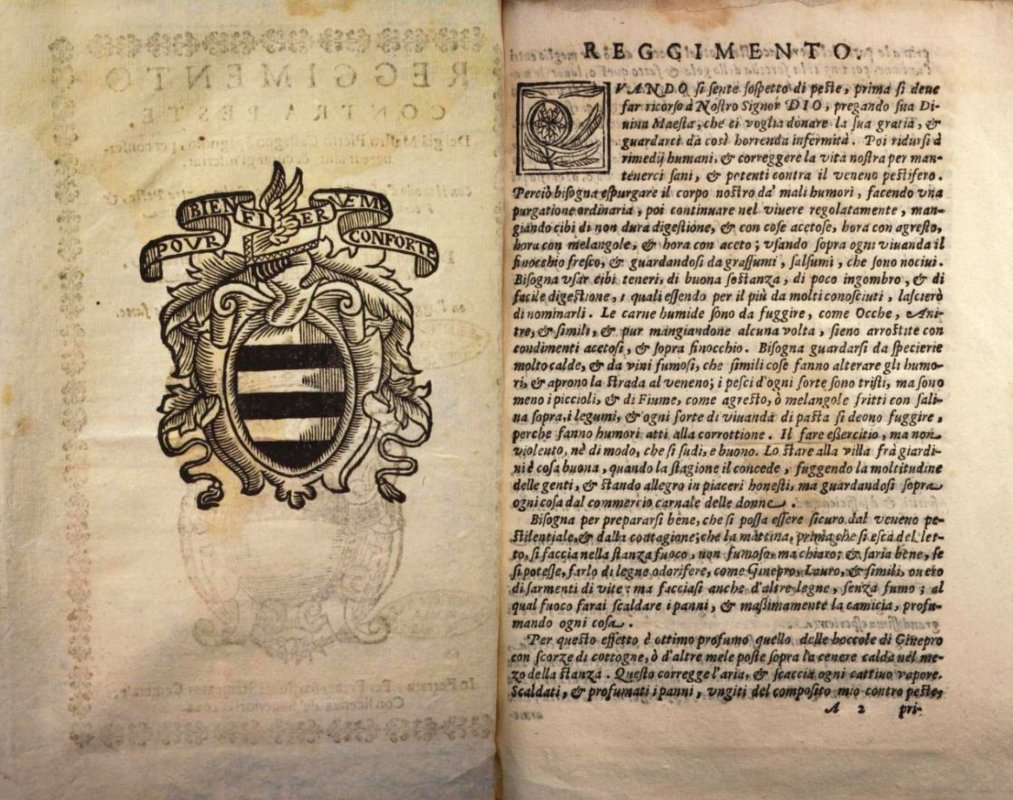 BIEN FI ER
POVR CONFORTE
REGGIMENTO.
QVANDO si sente sospetto di peste, prima si deue
far ricorso à Nostro Signor DIO, pregando sua Di-
uina Maestà, che ci voglia donare la sua gratia, &
guardarci da così horrenda infermità. Poi ridursi à
rimedij humani, & correggere la vita nostra per man-
tenerci sani, & potenti contra il veneno pestifero.
Perciò bisogna espurgare il corpo nostro da' mali humori, facendo vna
purgatione ordinaria, poi continuare nel viuere regolatamente, man-
giando cibi di non dura digestione, & con cose acetose, hora con agresto,
hora con melangole, & hora con aceto; vsando sopra ogni viuanda il
finocchio fresco, & guardandosi da grassumi, salsumi, che sono nociui.
Bisogna vsar cibi teneri, di buona sostanza, di poco ingombro, & di
facile digestione, i quali essendo per il più da molti conosciuti, lascierò
di nominarli. Le carne humide sono da fuggire, come Ocche, Ani-
tre, & simili, & pur mangiandone alcuna volta, sieno arrostite con
condimenti acetosi, & sopra finocchio. Bisogna guardarsi da specierie
molto calde, & da vini fumosi, che simili cose fanno alterare gli humo-
ri, & aprono la strada al veneno; i pesci d'ogni sorte sono tristi, ma sono
meno i piccioli, & di Fiume, come agresto, ò melangole fritti con sali-
na sopra, i legumi, & ogni sorte di viuanda di pasta si deono fuggire,
perche fanno humori atti alla corrottione. Il fare essercitio, ma non
violento, nè di modo, che si sudi, e buono. Lo stare alla villa frà giardi-
ni è cosa buona, quando la stagione il concede, fuggendo la moltitudine
delle genti, & stando allegro in piaceri honesti, ma guardandosi sopra
ogni cosa dal commercio carnale delle donne.
Bisogna per prepararsi bene, che si possa essere sicuro dal veneno pe-
stilentiale, & dalla contagione; che la mattina, prima che si esca del let-
to, si faccia nella stanza fuoco, non fumoso, ma chiaro; & saria bene, se
si potesse, farlo di legne odorifere, come Ginepro, Lauro, & simili, ouero
di sarmenti di vite: ma facciasi anche d'altre legne, senza fumo; al
qual fuoco farai scaldare i panni, & massimamente la camicia, profu-
mando ogni cosa.
Per questo effetto è ottimo profumo quello delle boccole di Ginepro
con scorze di cottogne, ò d'altre mele poste sopra la cenere calda nel me-
zo della stanza. Questo corregge l'aria, & scaccia ogni cattiuo vapore.
Scaldati, & profumati i panni, vngiti del composito mio contro peste,
A 2 pri-